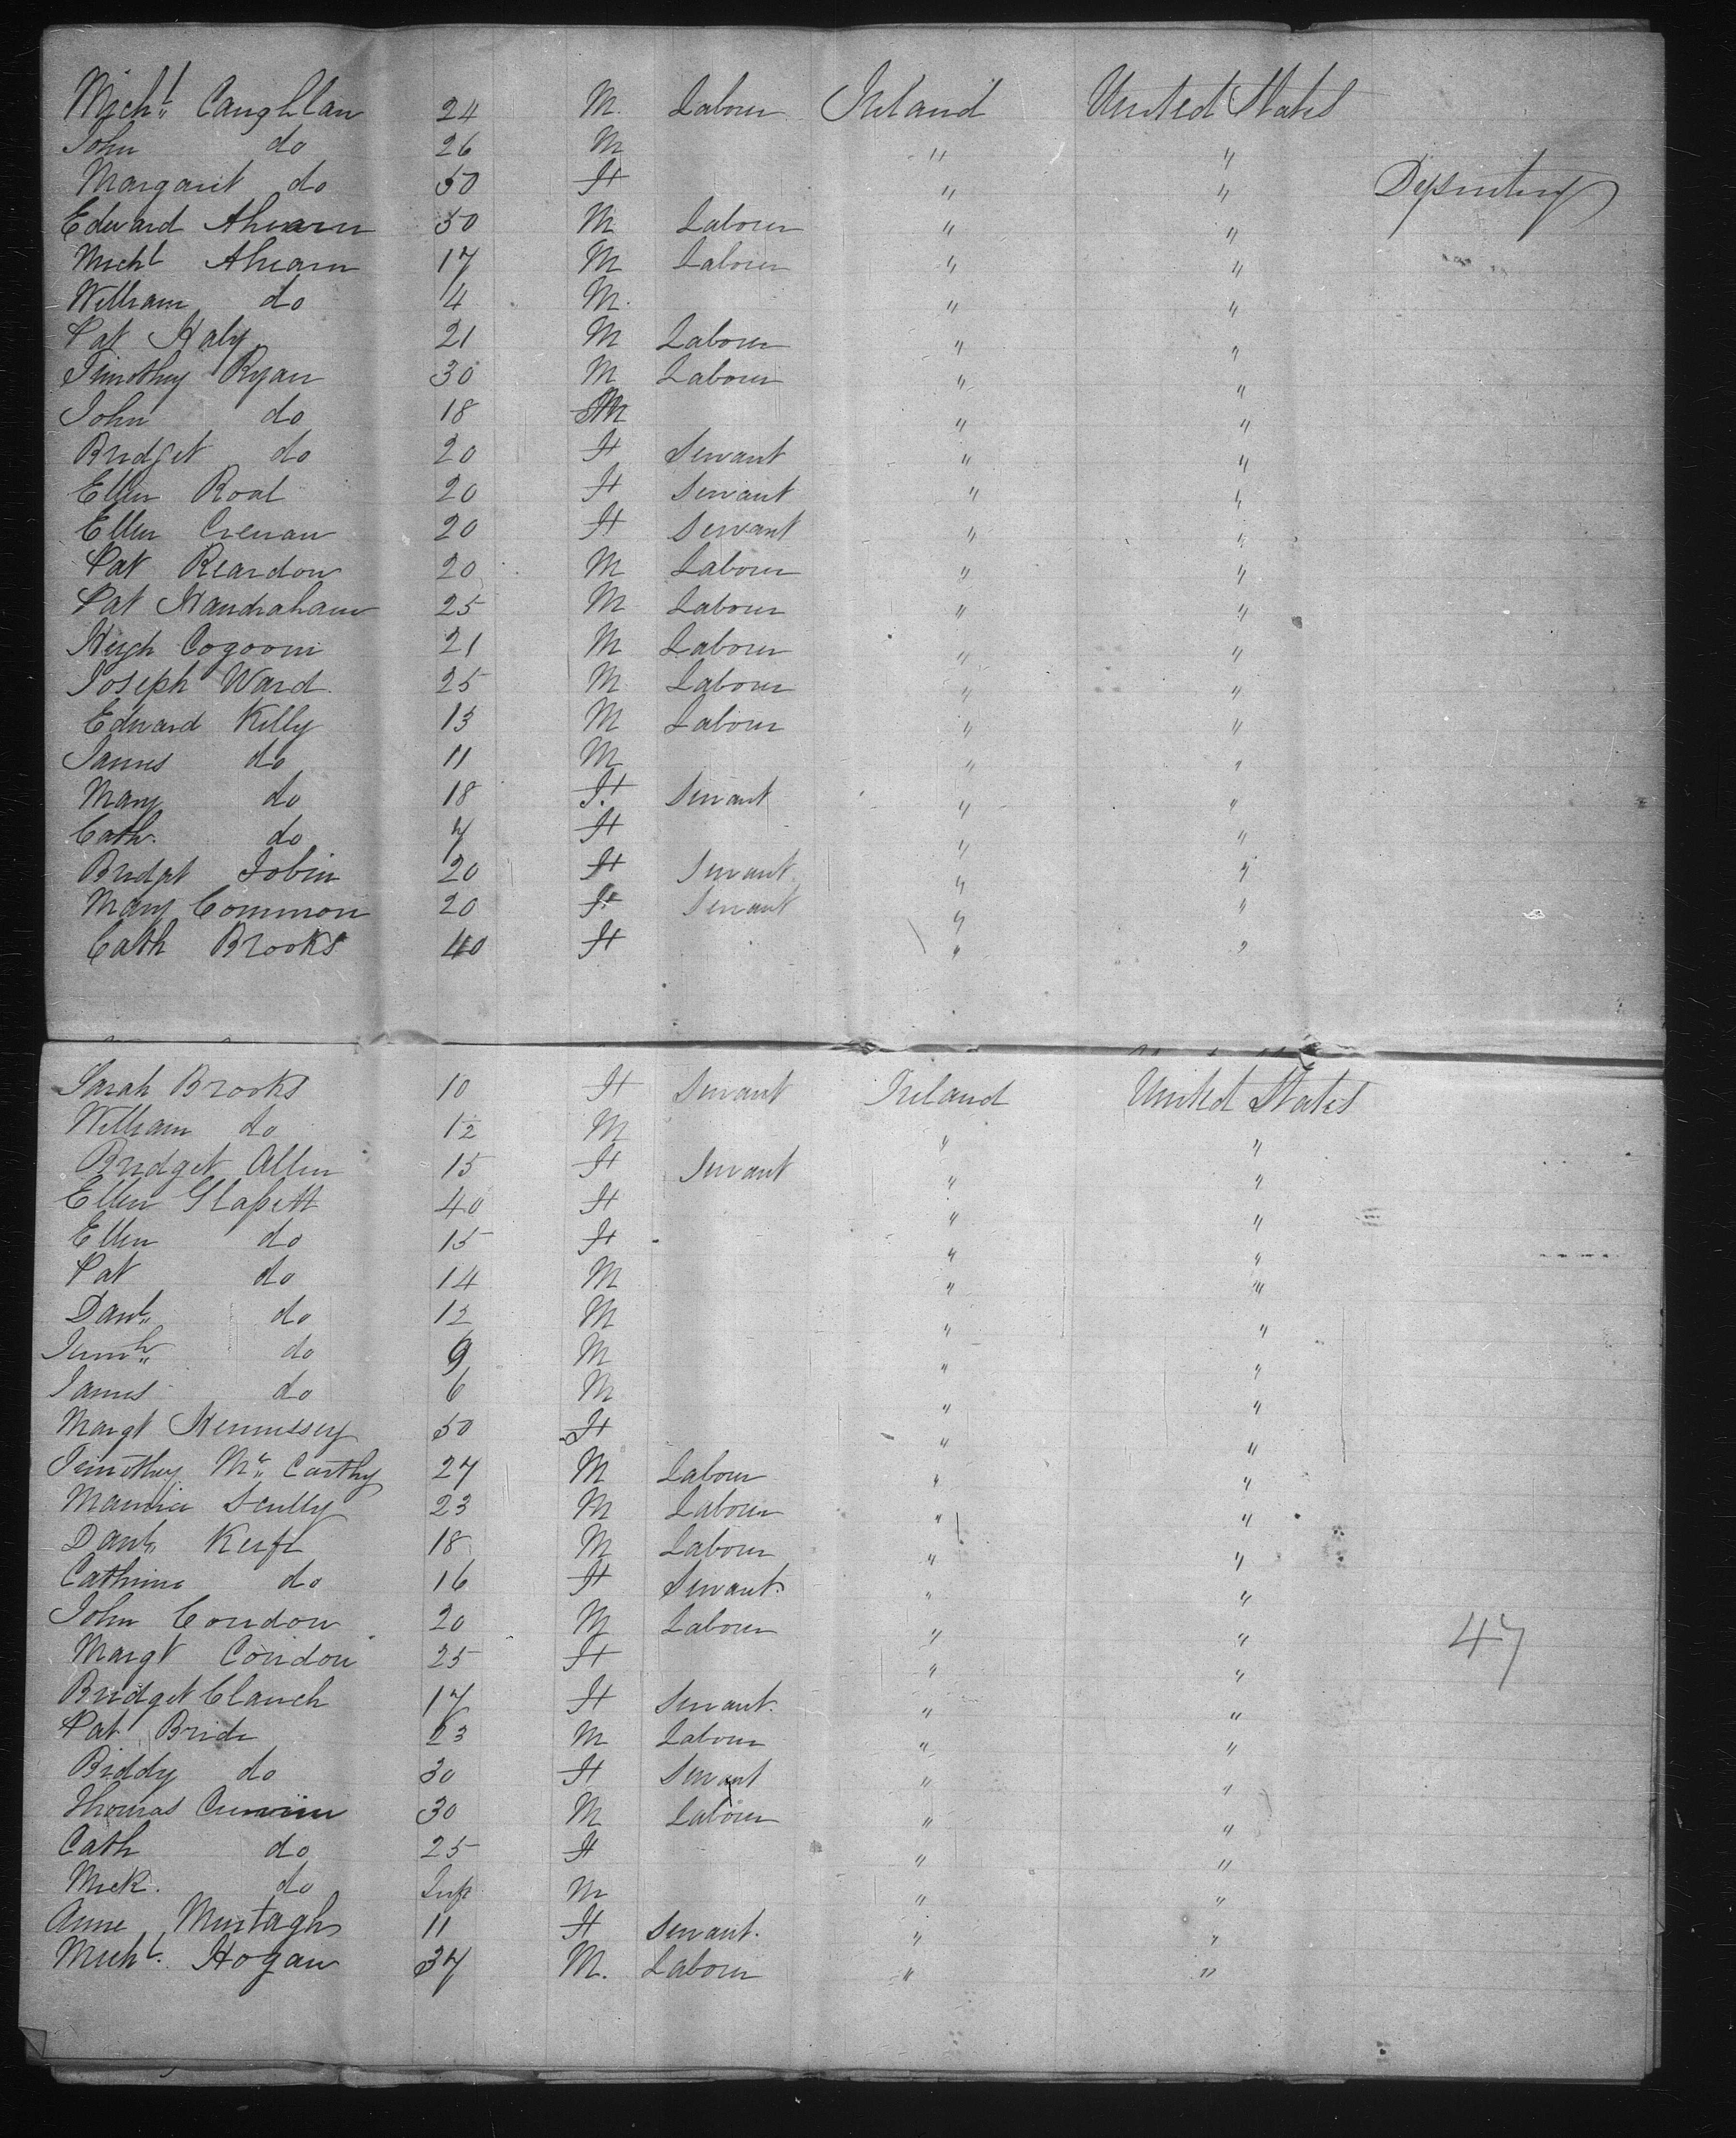 Michl Caughlan 24 M. Labourer Ireland United States
John do 26 M " "
Margaret do 50 F " " Dysentery
Edward Ahearn 50 M Labourer " "
Michl Ahearn 17 M Labourer " "
William do 4 M. " "
Pat Haly 21 M Labourer " "
Timothy Ryan 30 M Labourer " "
John do 18 M " "
Bridget do 20 F Servant " "
Ellen 20 F Servant " "
Ellen Crenan 20 F Servant " "
Pat Reardon 20 M Labourer " "
Pat Handrahan 25 M Labourer " "
Hugh 21 M Labourer " "
Joseph Ward. 25 M Labourer " "
Edward Kelly 13 M Labourer " "
James do 11 M " "
Mary do 18 F. Servant " "
Cath. do 7 F " "
Bridgt Tobin 20 F Servant " "
Mary Common 20 F Servant " "
Cath Brooks 40 F " "
Sarah Brooks 10 F Servant Ireland United States
William do 12 M " "
Bridget Allen 15 F Servant " "
Ellen 40 F " "
Ellen do 15 F " "
Pat do 14 M " "
Danl do 12 M " "
do 9 M " "
James do 6 M " "
Margt Hennessey 50 F " "
Timothy Mc Carthy 27 M Labourer " "
Maurice Scully 23 M Labourer " "
Danl 18 M Labourer " "
Cathrine do 16 F Servant. " "
John Condon 20 M Labourer " "
Margt Condon 25 F " " 47
Bridget Clanch 17 F Servant. " "
Pat Bride 23 M Labourer " "
Biddy do 30 F Servant " "
Thomas 30 M Labourer " "
Cath do 25 F " "
Mick. do Inf M " "
Anne Murtagh 11 F Servant. " "
Michl. Hogan 37 M. Labourer " "